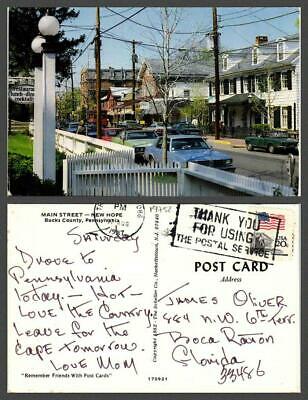 Restaurant
Lunch - dinner
cocktails
MAIN STREET — NEW HOPE
Bucks County, Pennsylvania
PM
THANK YOU
FOR USING
THE POSTAL SERVICE
USA
20c
Saturday
Drove to
Pennsylvania
Today — Hot —
Love the Country.
Leave for the
Cape Tomorrow.
Love Mom
"Remember Friends With Post Cards"
170921
POST CARD
Address
James Oliver
484 N.W. 6th Terr.
Boca Raton
Florida
33486